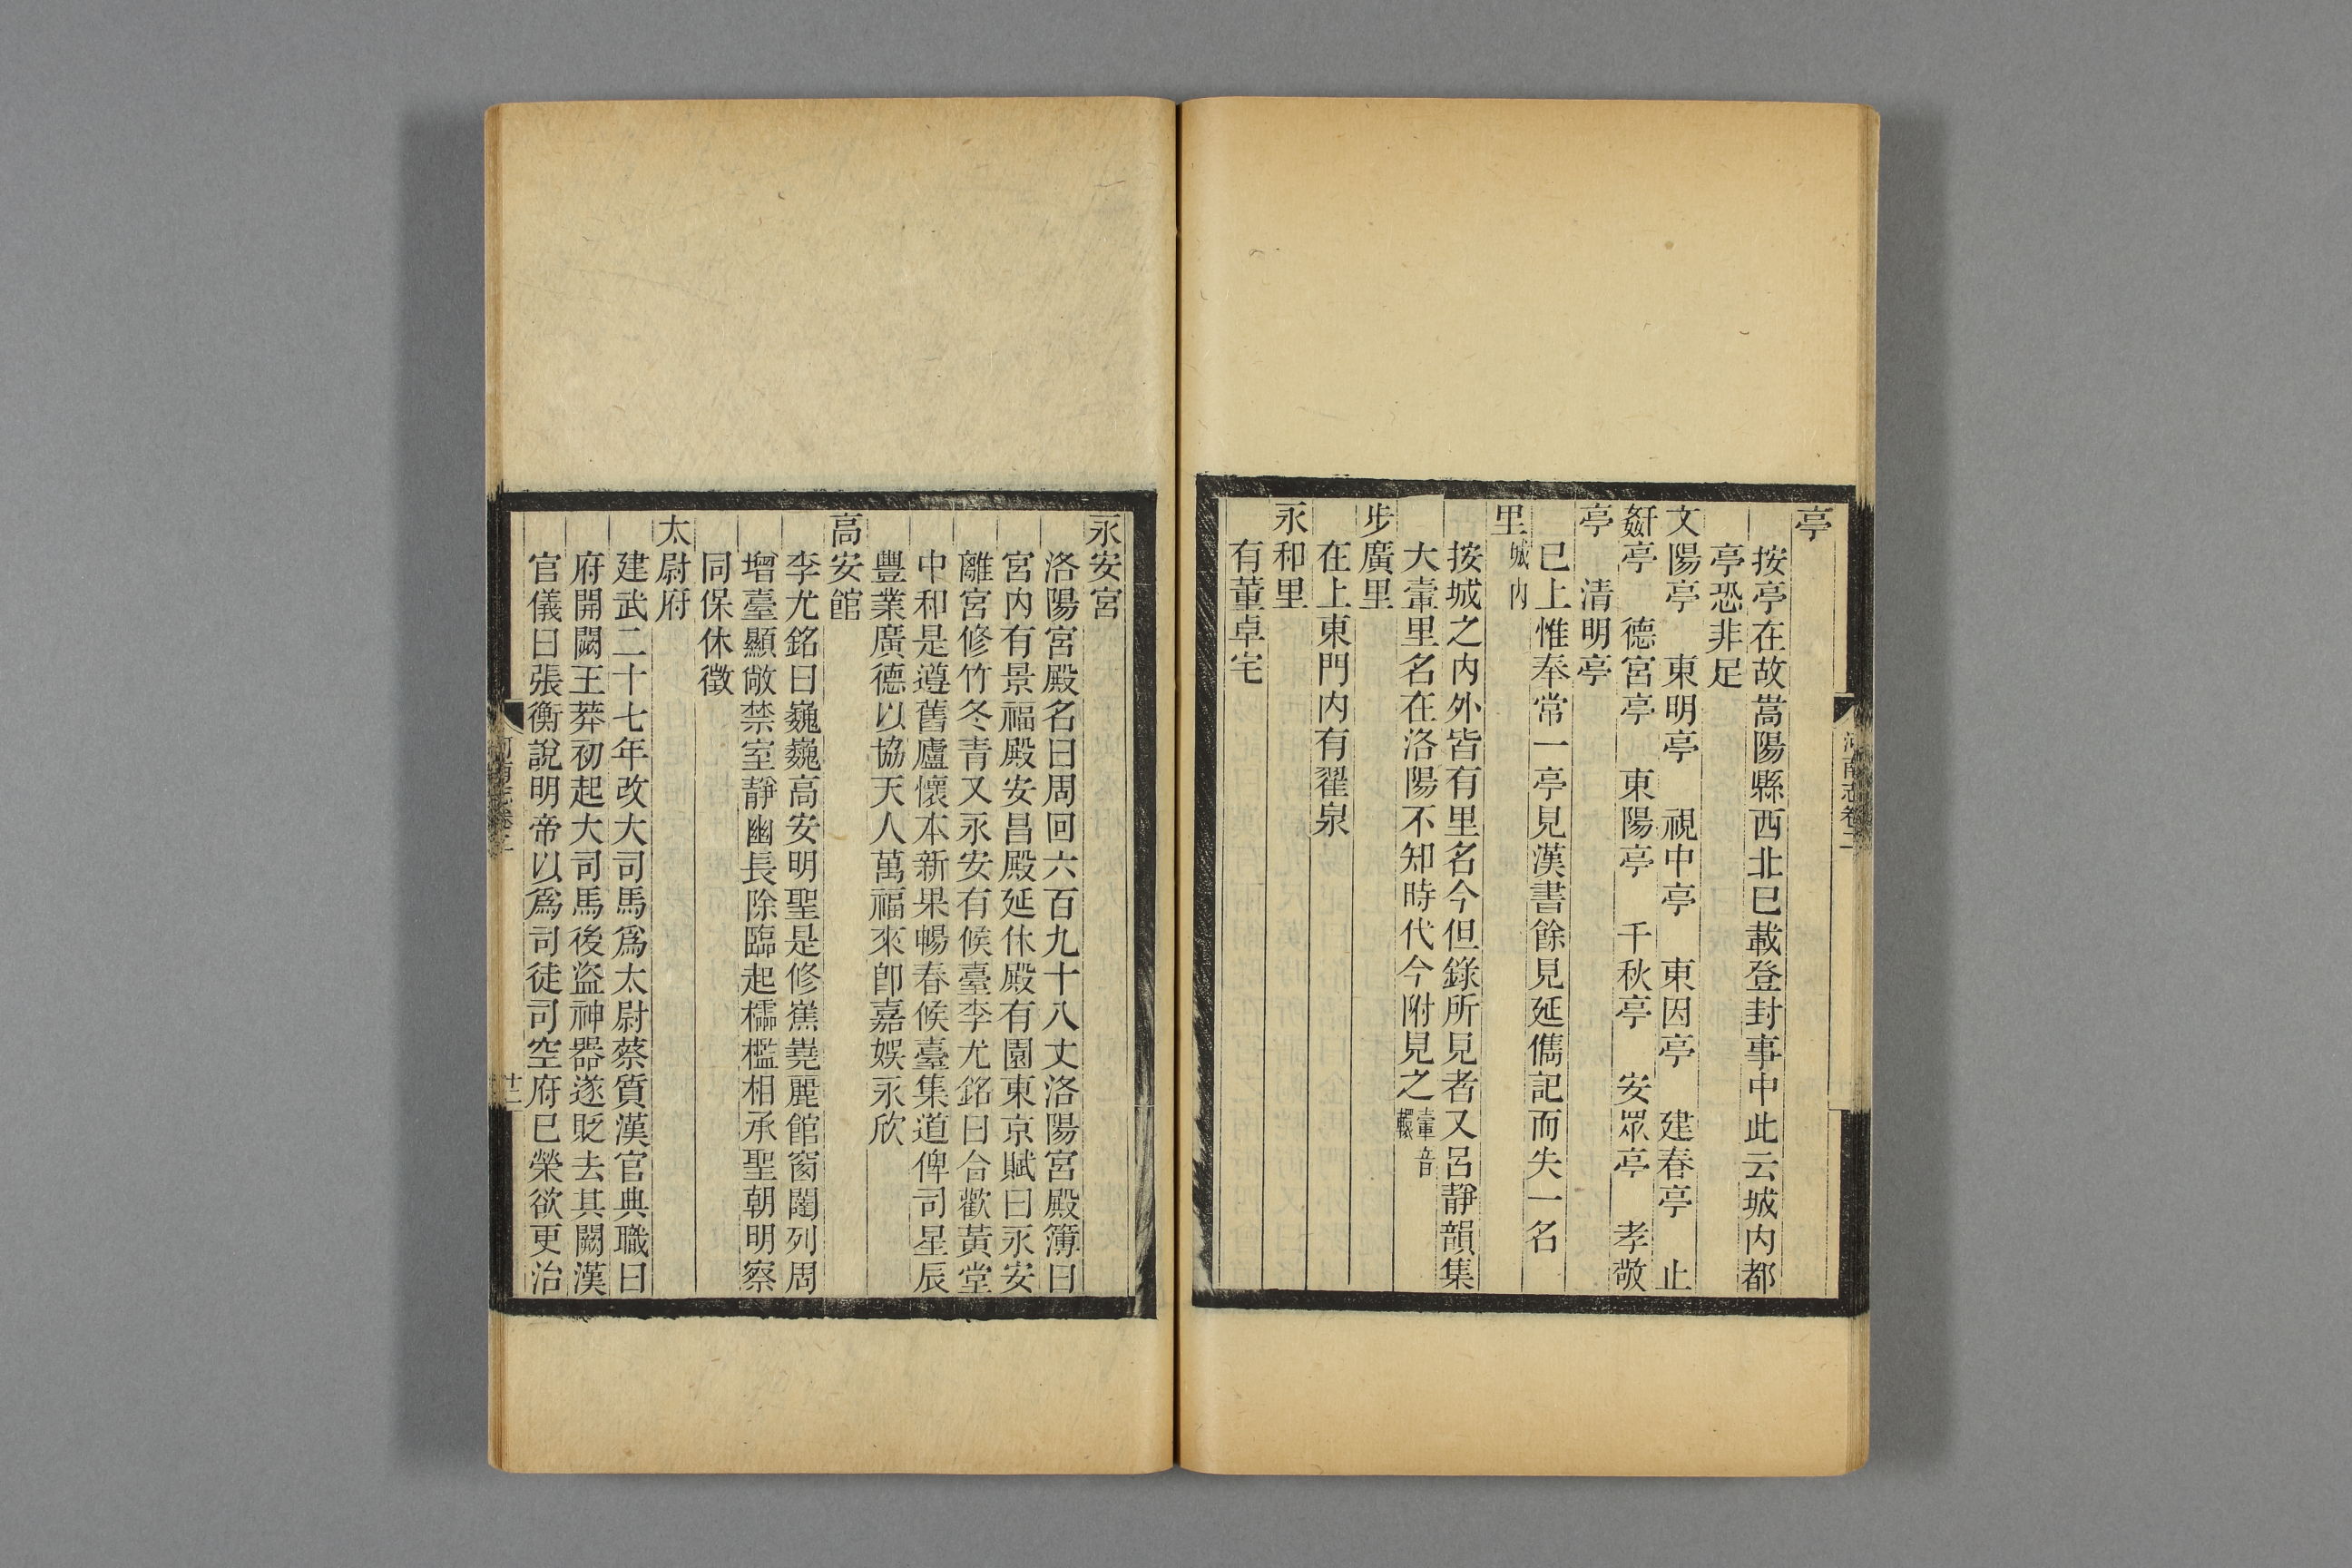 亭
按亭在故嵩陽縣西北巳載登封事中此云城内都
亭恐非足
文陽亭　東明亭　視中亭　東因亭　建春亭　止
姧亭　德宮亭　東陽亭　千秋亭　安眾亭　孝敬
亭　清明亭
已上惟奉常一亭見漢書餘見延儁記而失一名
里城内
按城之内外皆有里名今但錄所見者又呂靜韻集
大䡣里名在洛陽不知時代今附見之䡣音
步廣里
在上東門内有翟泉
永和里
有董卓宅
河南志卷二
永安宮
洛陽宮殿名曰周回六百九十八丈洛陽宮殿簿曰
宮内有景福殿安昌殿延休殿有園東京賦曰永安
離宮修竹冬青又永安有候臺李尤銘曰合歡黃堂
中和是遵舊廬懷本新果暢春候臺集道俾司星辰
豐業廣德以協天人萬福來卽嘉娛永欣
高安館
李尤銘曰巍巍高安明聖是修嶣嶤麗館窗闥列周
增臺顯敞禁室靜幽長除臨起櫺檻相承聖朝明察
同保休徵
太尉府
建武二十七年改大司馬爲太尉蔡質漢官典職曰
府開闕王莽初起大司馬後盜神器遂貶去其闕漢
官儀曰張衡說明帝以爲司徒司空府已榮欲更治